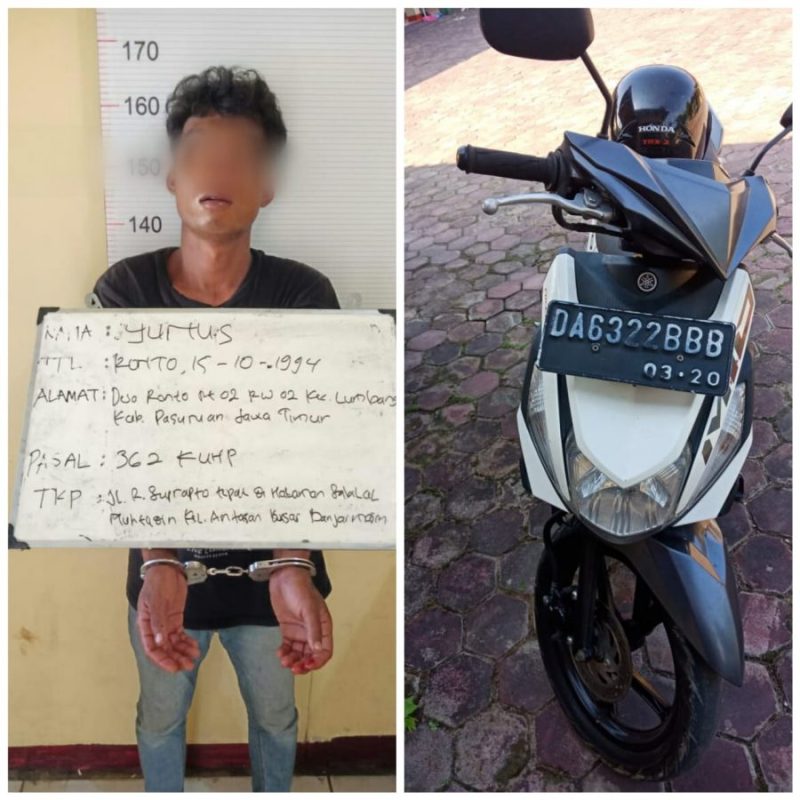 170
160
150
140
NAMA : YUNUS
TTL : RONTO, 15-10-1994
ALAMAT : Desa Ronto Rt 02 RW 02 Kec. Lumbang
Kab. Pasuruan Jawa Timur
PASAL : 362 KUHP
TKP : Jl. R. Suprapto tepat di Halaman
Kel. Antasan Besar Banjarmasin
HONDA
TRX-3
DA6322BBB
03·20